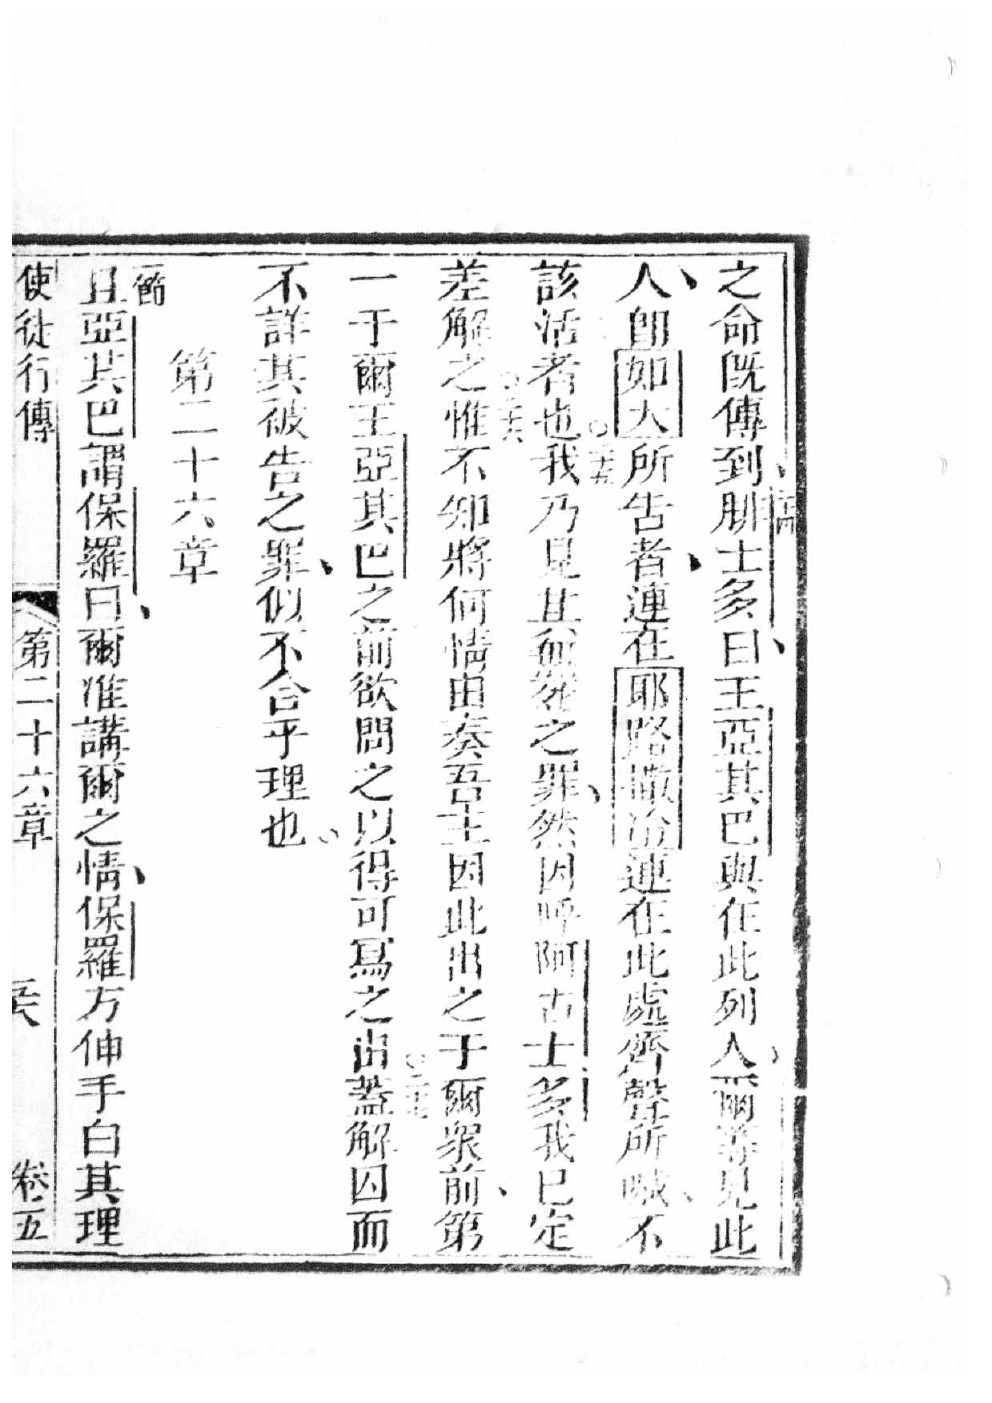 之命既傳到腓士多曰王亞其巴與在此列人爾等見此
人即如大所告者連在耶路撒冷連在此處齊聲所喊不
該活者也我乃見其無死之罪然因呼阿古士多我已定
差解之惟不知將何情由奏吾主因此出之于爾衆前第
一于爾王亞其巴之前欲問之以得可寫之由蓋解囚而
不詳其被告之罪似不合乎理也
第二十六章
一節
且亞其巴謂保羅曰爾准講爾之情保羅方伸手白其理
使徒行傳 第二十六章 卷五